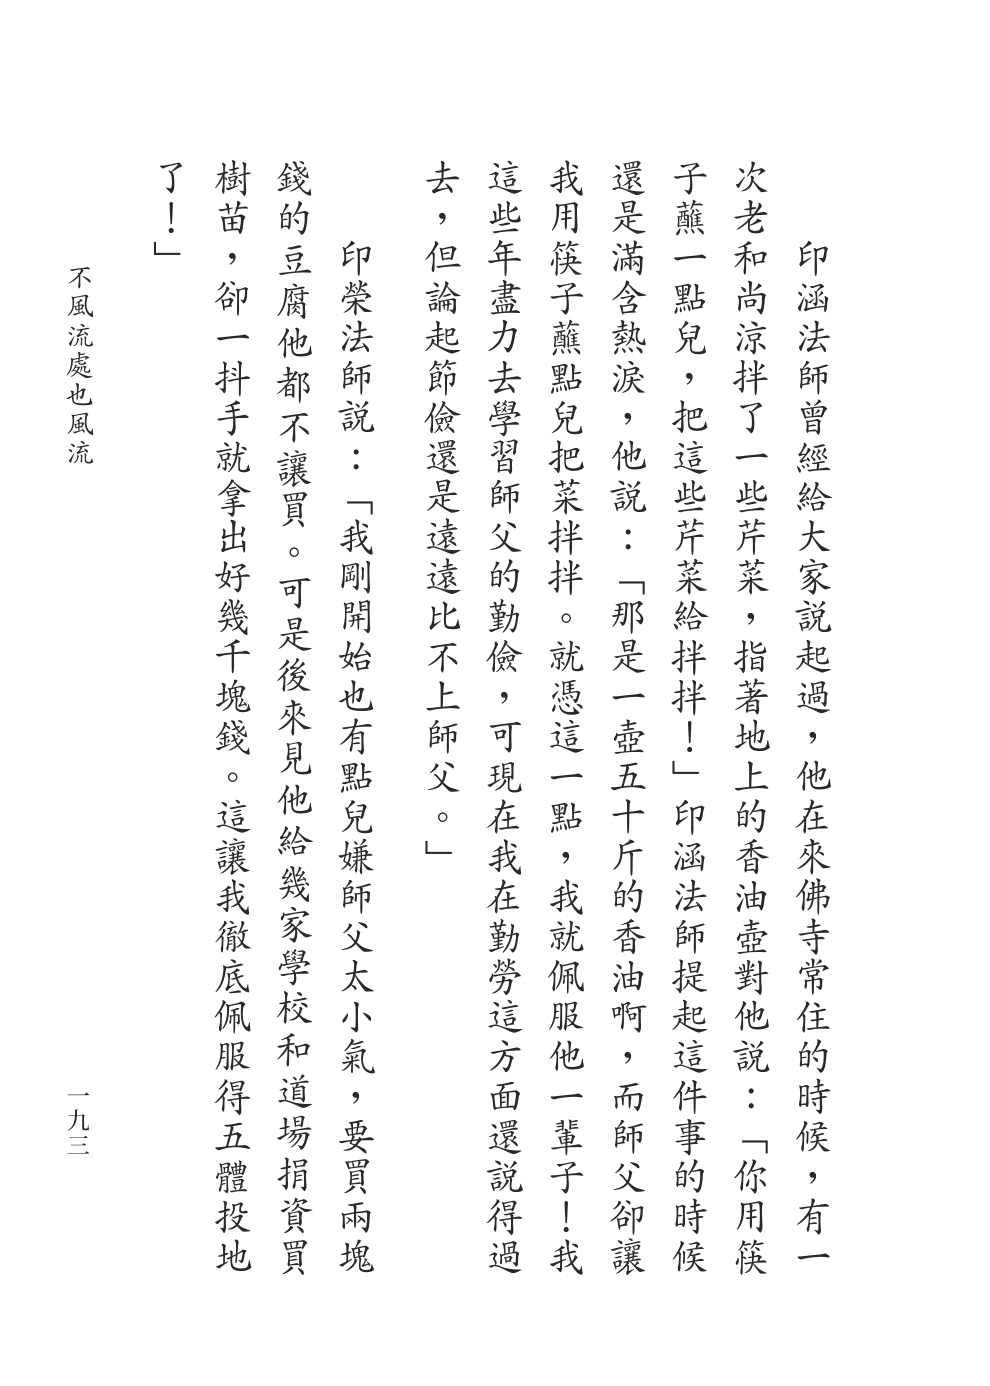 印涵法師曾經給大家説起過，他在來佛寺常住的時候，有一
次老和尚涼拌了一些芹菜，指著地上的香油壺對他説：「你用筷
子蘸一點兒，把這些芹菜給拌拌！」印涵法師提起這件事的時候
還是滿含熱淚，他説：「那是一壺五十斤的香油啊，而師父卻讓
我用筷子蘸點兒把菜拌拌。就憑這一點，我就佩服他一輩子！我
這些年盡力去學習師父的勤儉，可現在我在勤勞這方面還説得過
去，但論起節儉還是遠遠比不上師父。」
印榮法師説：「我剛開始也有點兒嫌師父太小氣，要買兩塊
錢的豆腐他都不讓買。可是後來見他給幾家學校和道場捐資買
樹苗，卻一抖手就拿出好幾千塊錢。這讓我徹底佩服得五體投地
了！」
不風流處也風流
一九三